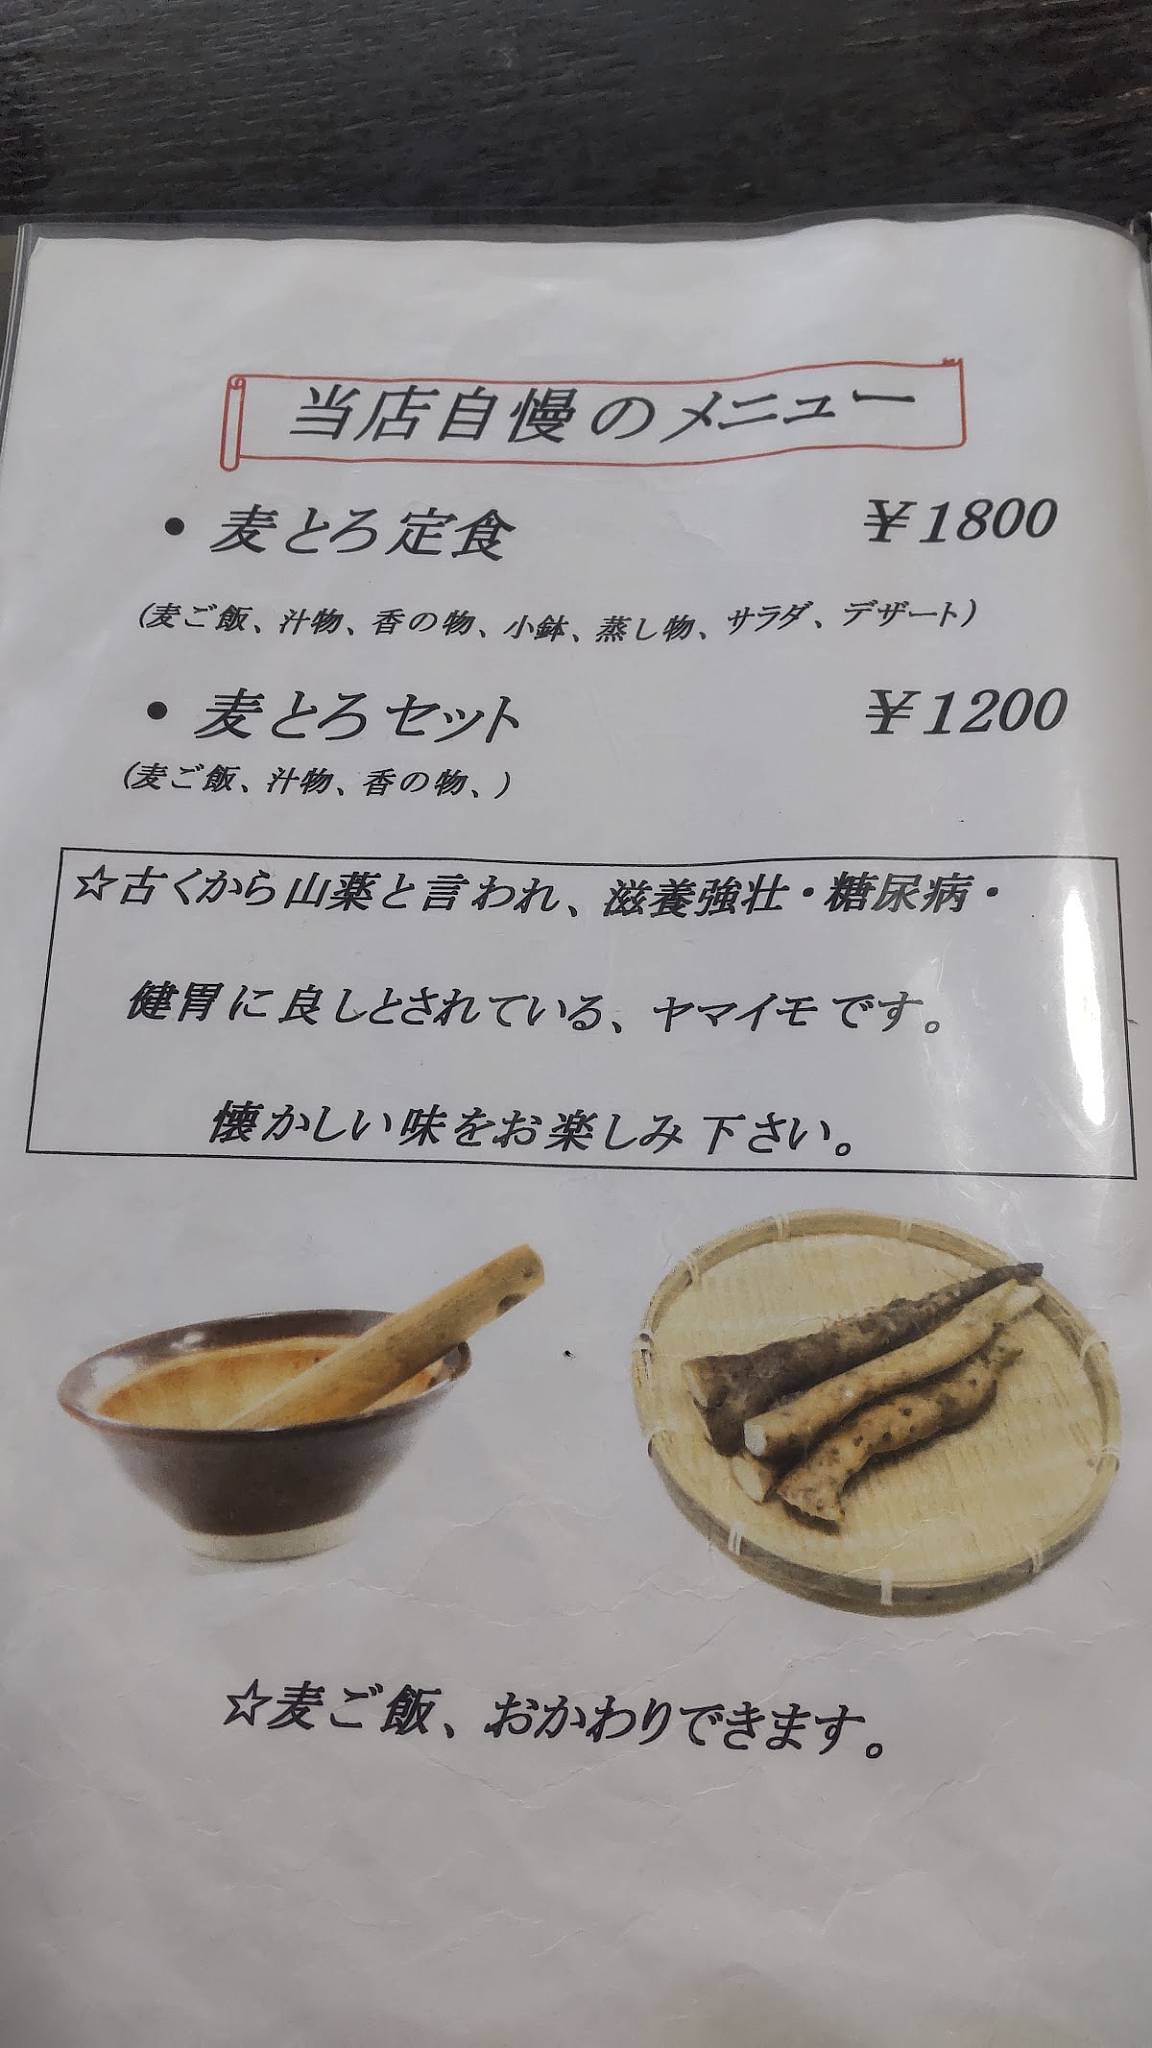 当店自慢のメニュー
・麦とろ定食 ¥1800
(麦ご飯、汁物、香の物、小鉢、蒸し物、サラダ、デザート)
・麦とろセット ¥1200
(麦ご飯、汁物、香の物、)
☆古くから山薬と言われ、滋養強壮・糖尿病・
健胃に良しとされている、ヤマイモです。
懐かしい味をお楽しみ下さい。
☆麦ご飯、おかわりできます。